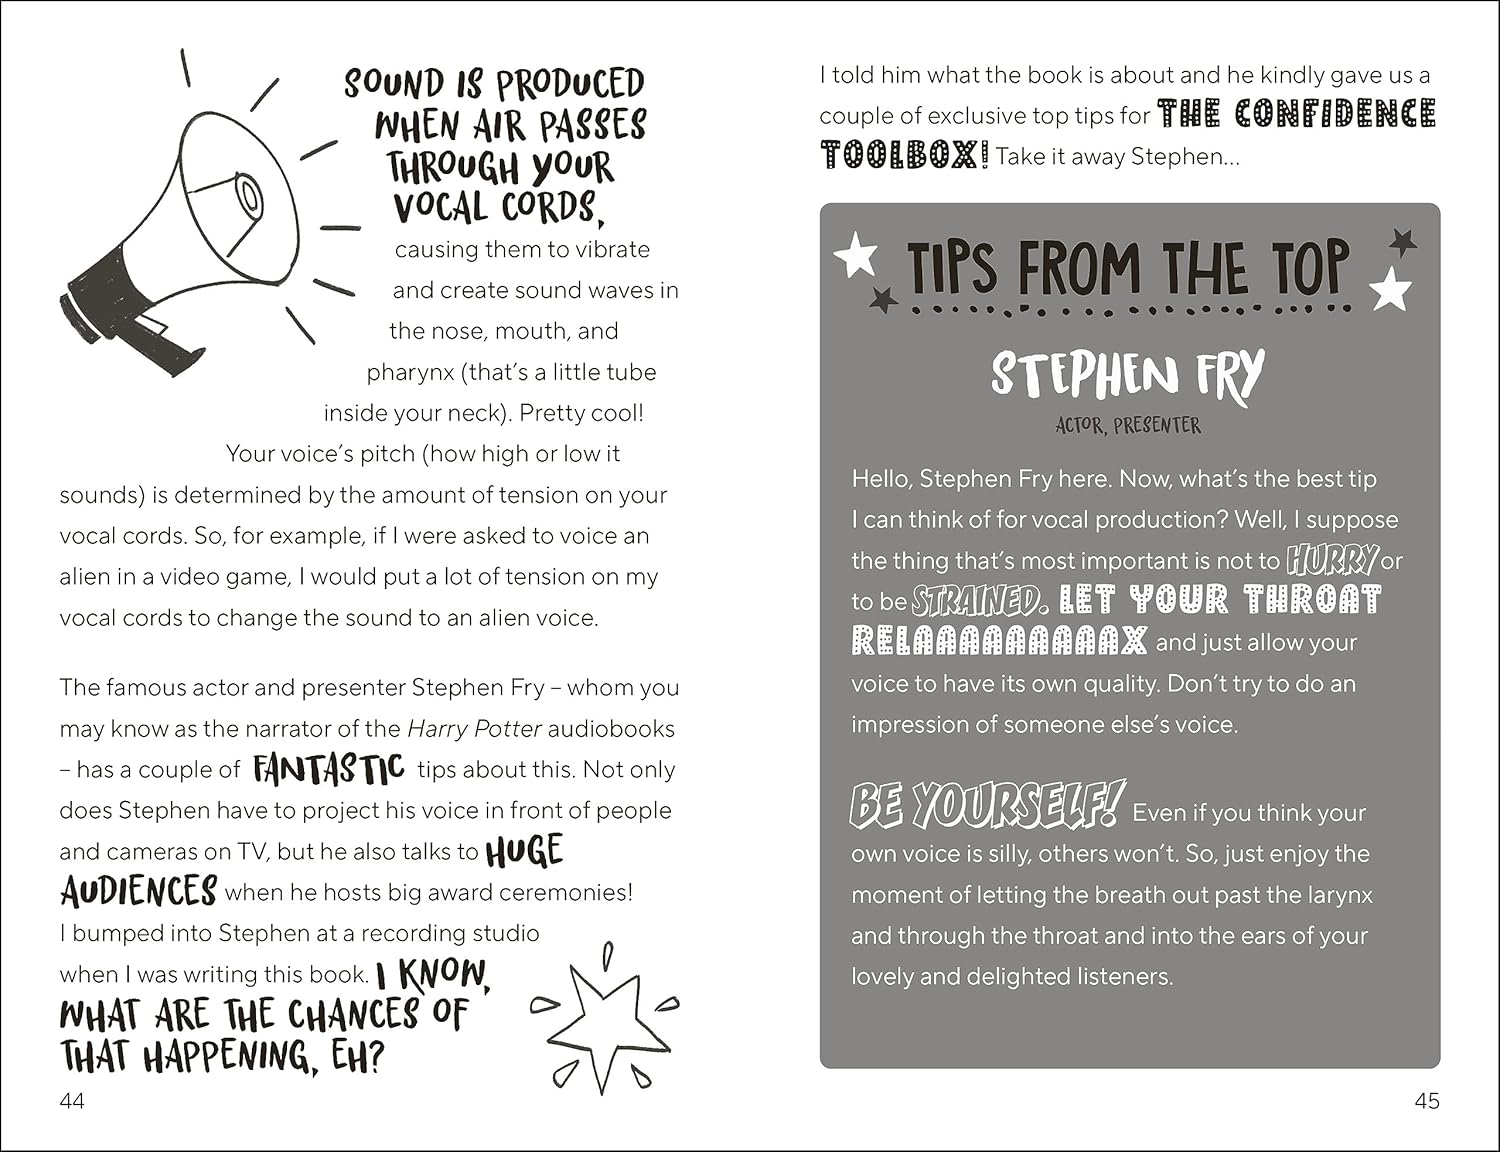 SOUND IS PRODUCED
WHEN AIR PASSES
THROUGH YOUR
VOCAL CORDS,
causing them to vibrate
and create sound waves in
the nose, mouth, and
pharynx (that’s a little tube
inside your neck). Pretty cool!
Your voice’s pitch (how high or low it
sounds) is determined by the amount of tension on your
vocal cords. So, for example, if I were asked to voice an
alien in a video game, I would put a lot of tension on my
vocal cords to change the sound to an alien voice.
The famous actor and presenter Stephen Fry – whom you
may know as the narrator of the Harry Potter audiobooks
– has a couple of FANTASTIC tips about this. Not only
does Stephen have to project his voice in front of people
and cameras on TV, but he also talks to HUGE
AUDIENCES when he hosts big award ceremonies!
I bumped into Stephen at a recording studio
when I was writing this book. I KNOW,
WHAT ARE THE CHANCES OF
THAT HAPPENING, EH?
44
I told him what the book is about and he kindly gave us a
couple of exclusive top tips for THE CONFIDENCE
TOOLBOX! Take it away Stephen...
TIPS FROM THE TOP
STEPHEN FRY
ACTOR, PRESENTER
Hello, Stephen Fry here. Now, what’s the best tip
I can think of for vocal production? Well, I suppose
the thing that’s most important is not to HURRY or
to be STRAINED. LET YOUR THROAT
RELAAAAAAAAAAX and just allow your
voice to have its own quality. Don’t try to do an
impression of someone else’s voice.
BE YOURSELF! Even if you think your
own voice is silly, others won’t. So, just enjoy the
moment of letting the breath out past the larynx
and through the throat and into the ears of your
lovely and delighted listeners.
45